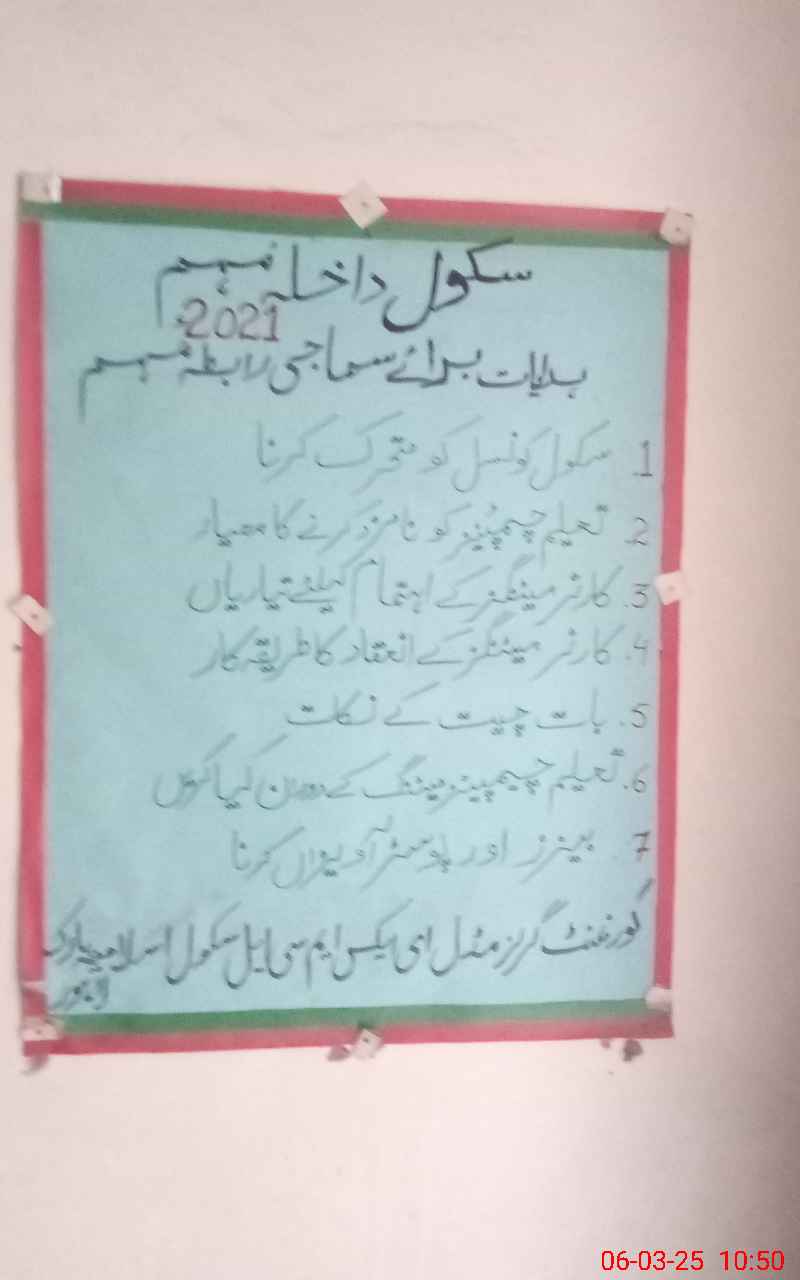 سکول داخلہ مہم
2021
ہدایات برائے سماجی رابطہ مہم
1. سکول کونسل کو متحرک کرنا
2. تعلیم چیمپئنز کو نامزد کرنے کا معیار
3. کارنر میٹنگز کے اہتمام کیلئے تیاریاں
4. کارنر میٹنگز کے انعقاد کا طریقہ کار
5. بات چیت کے نکات
6. تعلیم چیمپینز میٹنگ کے دوران کیا کریں
7. بینرز اور پوسٹر آویزاں کرنا
گورنمنٹ گرلز مڈل ای ایکس ایم سی ایل سکول اسلامیہ پارک
لاہور
06-03-25 10:50